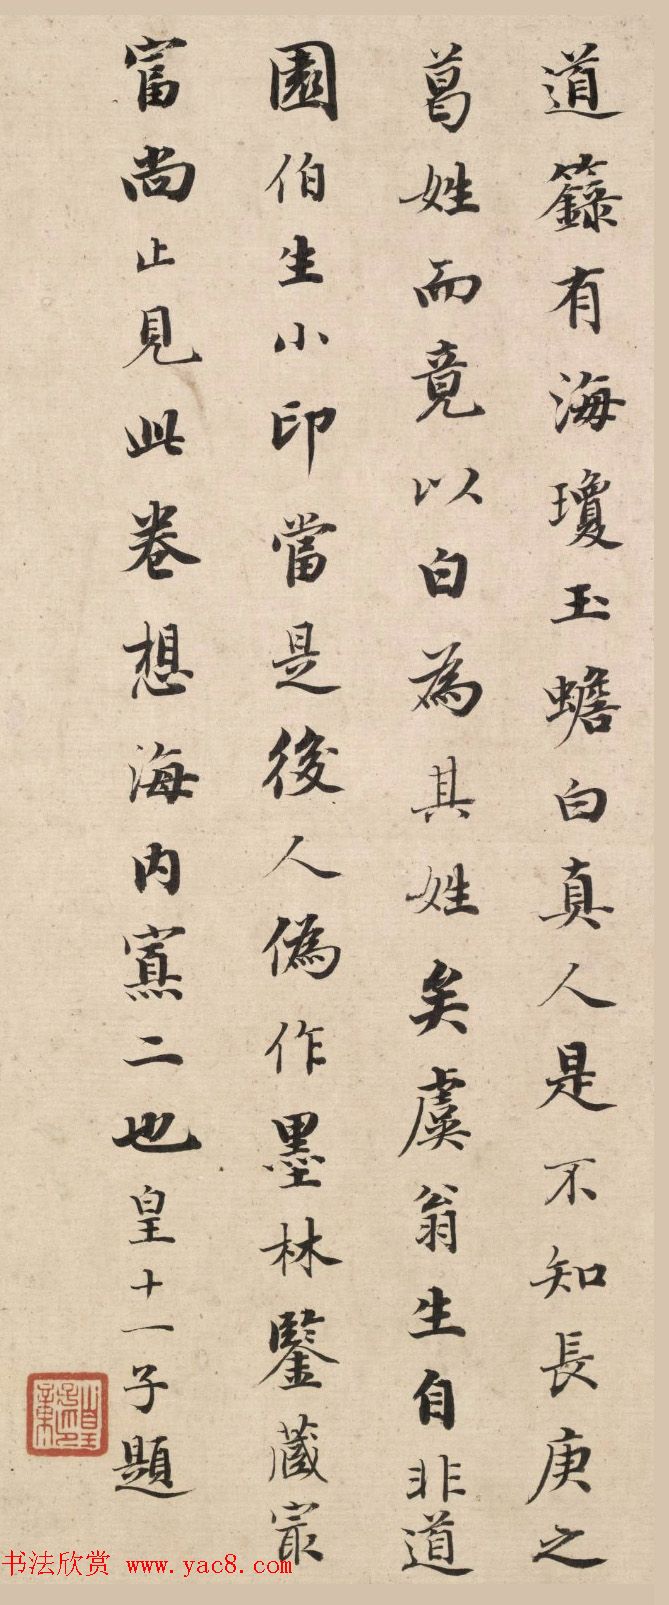 道籙有海瓊玉蟾白真人是不知長庚之
葛姓而竟以白為其姓矣虞翁生自非道
園伯生小印當是後人偽作墨林鑒藏最
富尚止見此卷想海内寡二也皇十一子題
书法欣赏 www.yac8.com